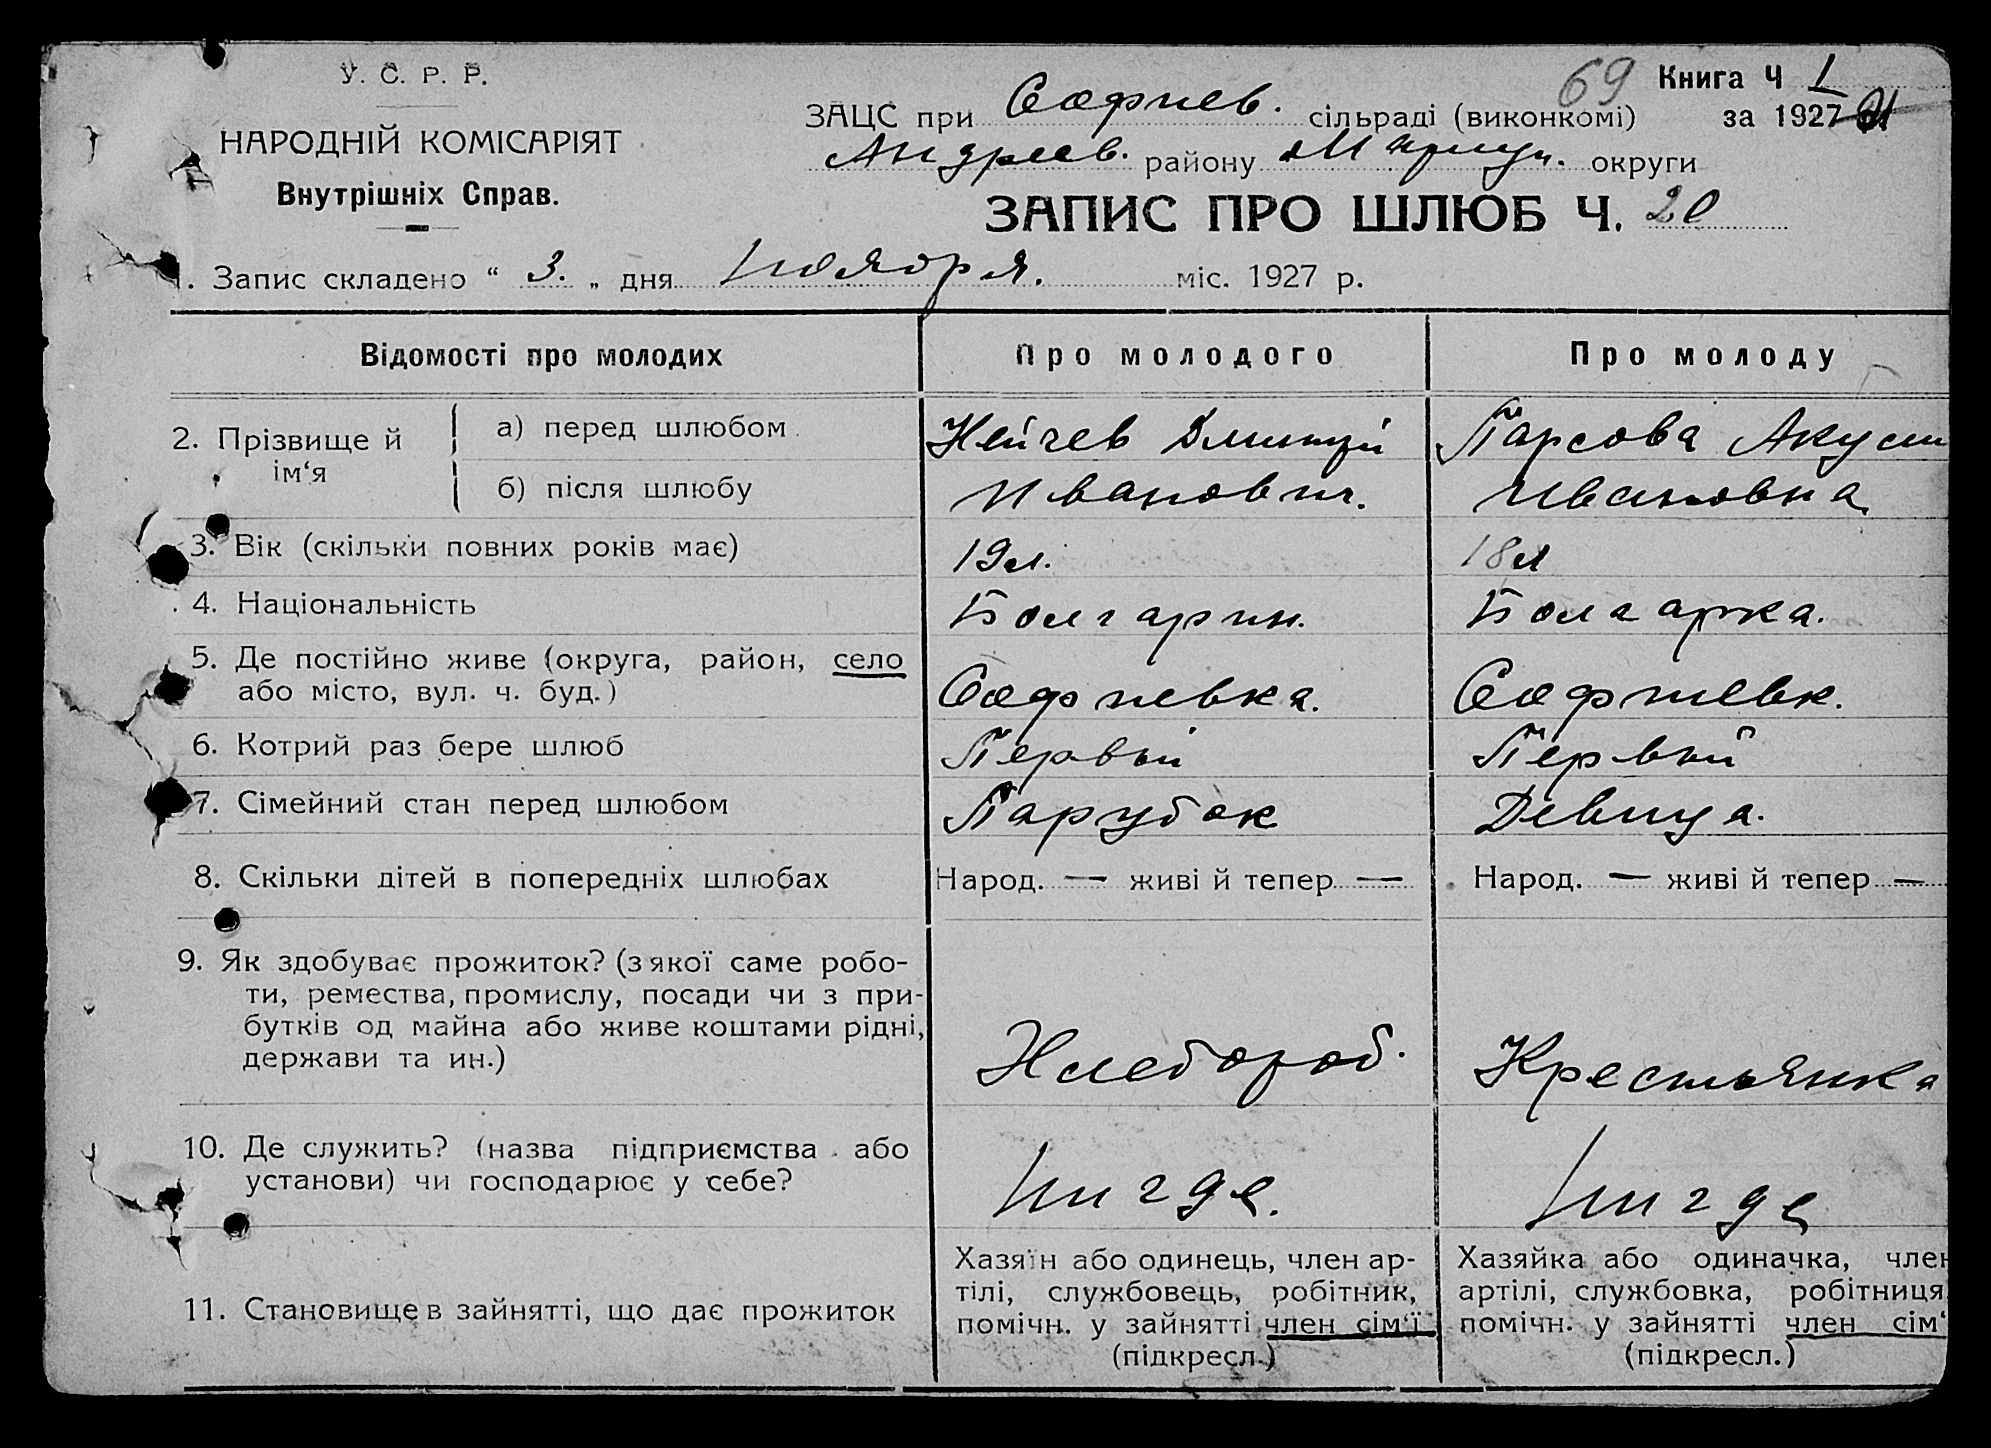 У. С. Р. Р.
НАРОДНІЙ КОМІСАРІЯТ
Внутрішніх Справ.
69 Книга Ч I
ЗАЦС при Софиев. сільраді (виконкомі) за 1927
Андреев. району Мариуп. округи
ЗАПИС ПРО ШЛЮБ Ч. 20
1. Запис складено “ 3. „ дня Ноября. міс. 1927 р.
Відомості про молодих Про молодого Про молоду
2. Прізвище й ім‘я а) перед шлюбом Нейчев Дмитрий Парсова Акули
б) після шлюбу Иванович. Ивановна
3. Вік (скільки повних років має) 19 л. 18 л
4. Національність Болгарин. Болгарка.
5. Де постійно живе (округа, район, село
або місто, вул. ч. буд.) Софиевка. Софиевк.
6. Котрий раз бере шлюб Первый Первый
7. Сімейний стан перед шлюбом Парубок Девица.
8. Скільки дітей в попередніх шлюбах Народ. — живі й тепер — Народ. — живі й тепер —
9. Як здобуває прожиток? (з якої саме робо-
ти, ремества, промислу, посади чи з при-
бутків од майна або живе коштами рідні,
держави та ин.) Хлебороб. Крестьянка
10. Де служить? (назва підприємства або
установи) чи господарює у себе? Нигде. Нигде
11. Становище в зайнятті, що дає прожиток
Хазяїн або одинець, член ар-
тілі, службовець, робітник,
помічн. у зайнятті член сім‘ї
(підкресл.)
Хазяйка або одиначка, член
артілі, службовка, робітниця
помічн. у зайнятті член сім‘
(підкресл.)